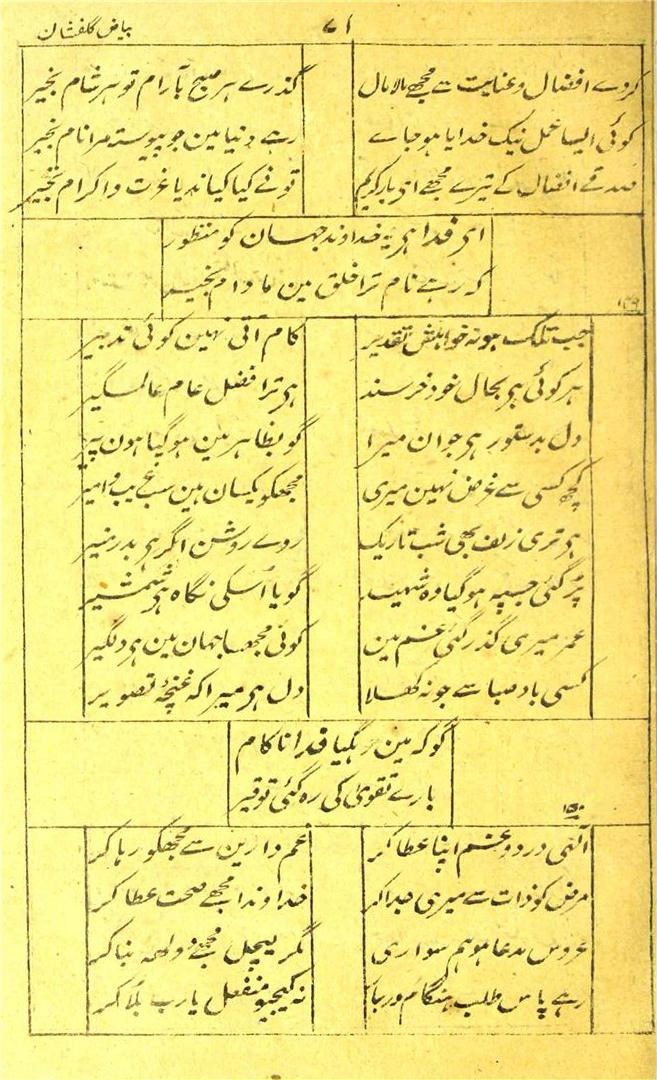 بیاض گلفشان
۷۱
کردے افضال و عنایت سے مجھے مالامال
گذرے ہر صبح بآرام تو ہر شام بخیر
کوئی ایسا عمل نیک خدایا ہو جاے
رہے دنیا مین جو پیوستہ مرا نام بخیر
صدقے افضال کے تیرے مجھے ای بار کریم
تونے کیا کیا ندیا عزت و اکرام بخیر
ای فدا ہی یہ خداوند جہان کو منظور
کہ رہے نام ترا خلق مین مادام بخیر
۱۴۹
جب تلک ہو نہ خواہش تقدیر
کام آتی نہین کوئی تدبیر
ہر کوئی ہی بحال خود خرسند
ہی ترا فضل عام عالمگیر
دل بدستور ہی جوان میرا
گو بظاہر مین ہو گیا ہون پیر
کچھ کسی سے غرض نہین میری
مجھکو یکسان ہین سب غریب و امیر
ہی تری زلف بھی شب تاریک
روے روشن اگر ہی بدر منیر
پڑ گئی جسپہ ہو گیا وہ شہید
گویا اُسکی نگاہ ہی شمشیر
عمر میری گذر گئی غم مین
کوئی مجھسا جہان مین ہی دلگیر
کسی باد صبا سے جو نہ کھلا
دل ہی میرا کہ غنچۂ تصویر
گو کہ مین رہگیا فدا ناکام
بارے تقویٰ کی رہ گئی توقیر
۱۵۰
آلہی درد و غم اپنا عطا کر
غم دارین سے مجھکو رہا کر
مرض کو ذات سے میری جدا کر
خداوندا مجھے صحت عطا کر
عروس مدعا ہو ہم سواری
مگر مجھے دولھہ بنا کر
رہے پاس طلب ہنگام دربار
نہ کیجیو منفعل یارب بُلا کر